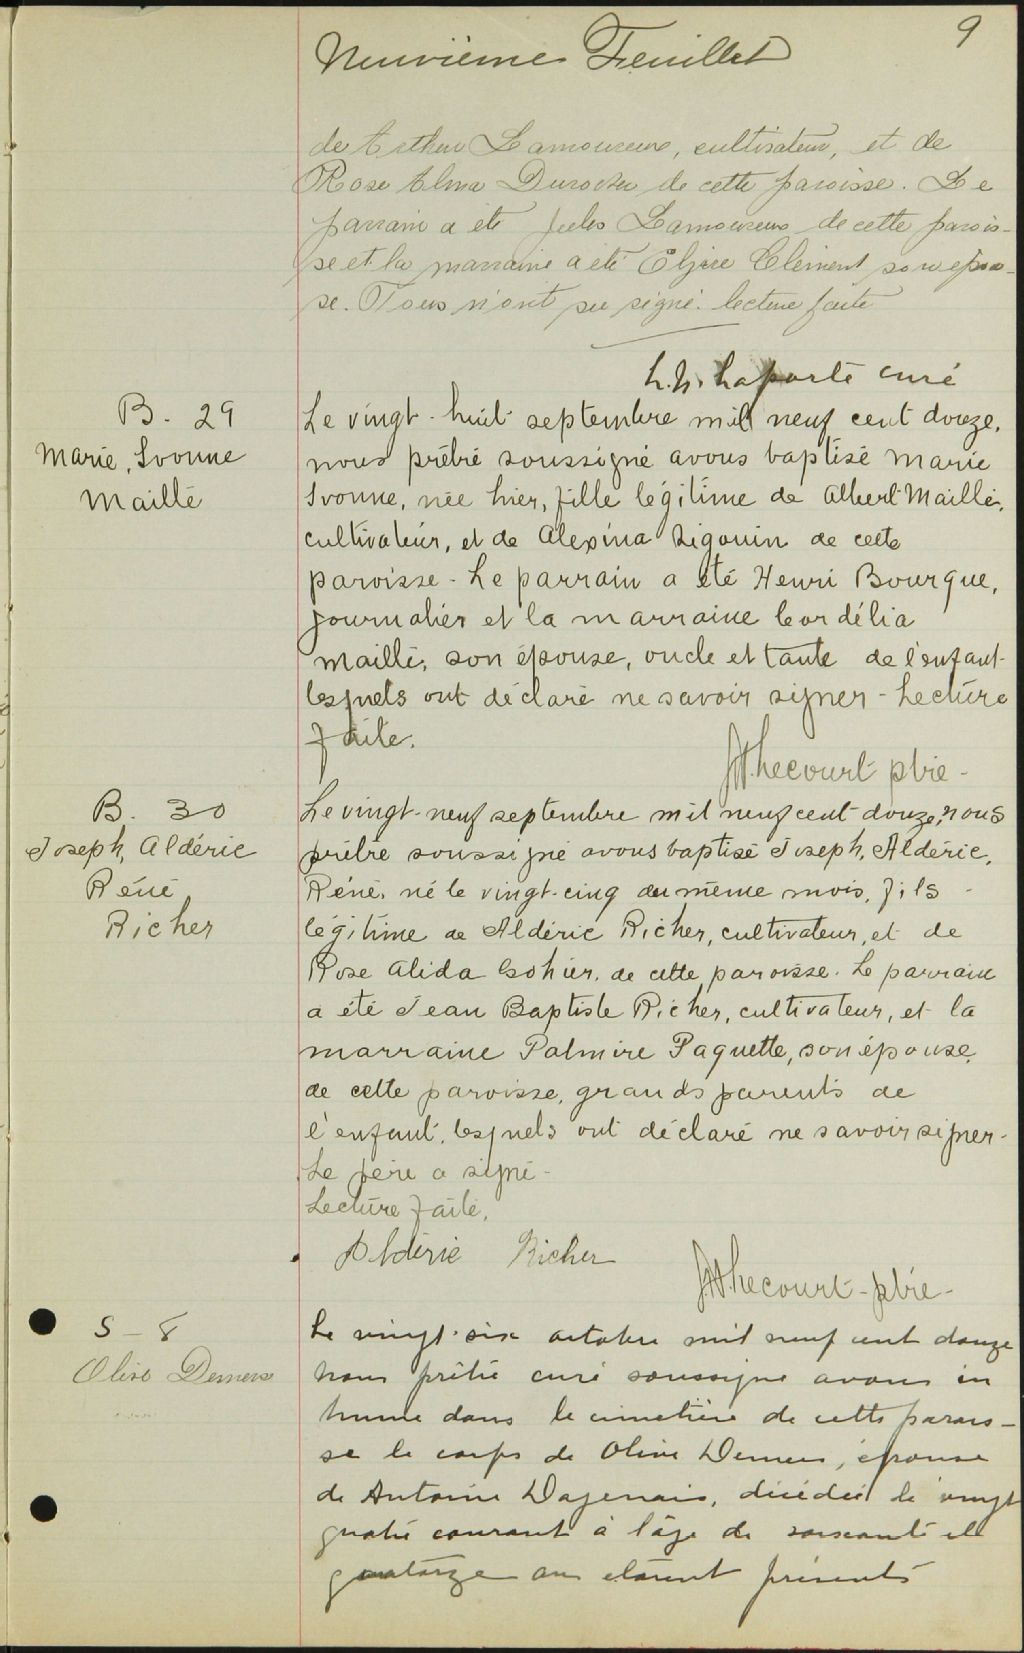 9
Neuvième Feuillet
de Arthur Lamoureux, cultivateur, et de
Rose Alma Durocher de cette paroisse. Le
parrain a été Jules Lamoureux de cette parois-
se et la marraine a été Elzire Clément son épou-
se. Tous n'ont su signé. lecture faite
Laporte curé
B. 29
Marie, Ivonne
Maillé
Le vingt-huit septembre mil neuf cent douze,
nous prêtre soussigné avons baptisé Marie
Ivonne, née hier, fille légitime de Albert Maillé,
cultivateur, et de Alexina Sigouin de cette
paroisse - Le parrain a été Henri Bourque,
journalier et la marraine Cordélia
Maillé, son épouse, oncle et tante de l'enfant
lesquels ont déclaré ne savoir signer - Lecture
faite.
Lecourt ptre -
B. 30
Joseph, Aldéric
Réné
Richer
Le vingt-neuf septembre mil neuf cent douze, nous
prêtre soussigné avons baptisé Joseph, Aldéric,
Réné, né le vingt-cinq du même mois, fils -
légitime de Aldéric Richer, cultivateur, et de
Rose Alida Gohier, de cette paroisse. Le parrain
a été Jean Baptiste Richer, cultivateur, et la
marraine Palmire Paquette, son épouse,
de cette paroisse, grands parents de
l'enfant, lesquels ont déclaré ne savoir signer -
Le père a signé -
Lecture faite.
Aldéric Richer
Lecourt - ptre -
S - 8
Olive Demers
Le vingt-six octobre mil neuf cent douze
nous prêtre curé soussigné avons in
humé dans le cimetière de cette parois-
se le corps de Olive Demers, épouse
de Antoine Dagenais, décédée le vingt
quatre courant à l'âge de soixante et
quatorze ans étaient présents